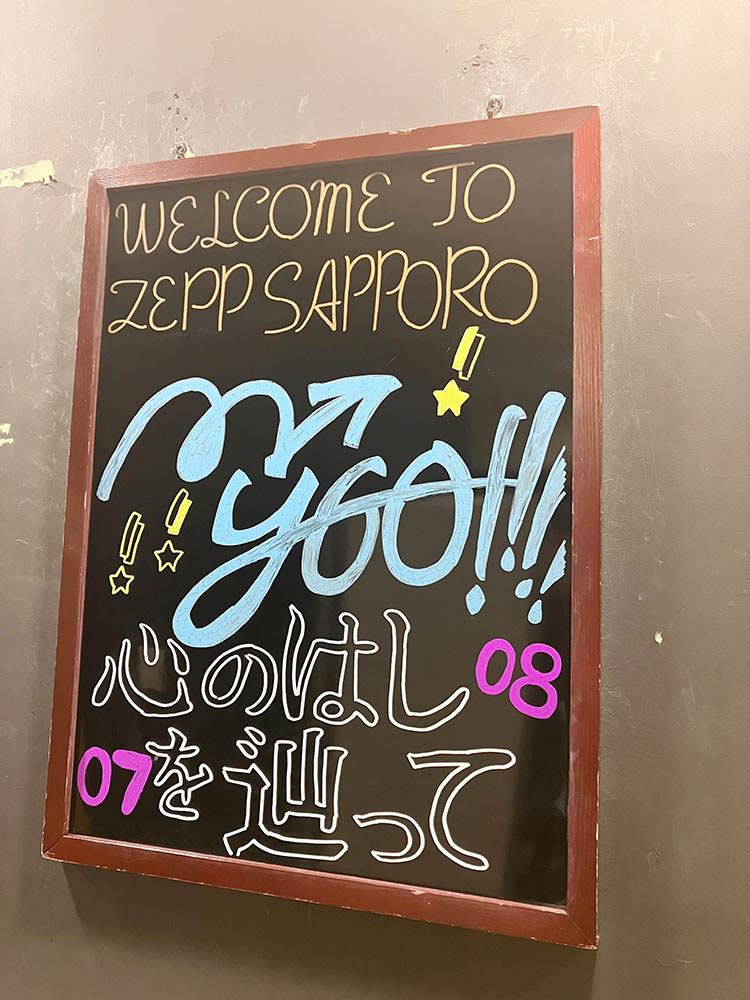 WELCOME TO
ZEPP SAPPORO
MyGO!!!!!
心のはし 08
07 を辿って